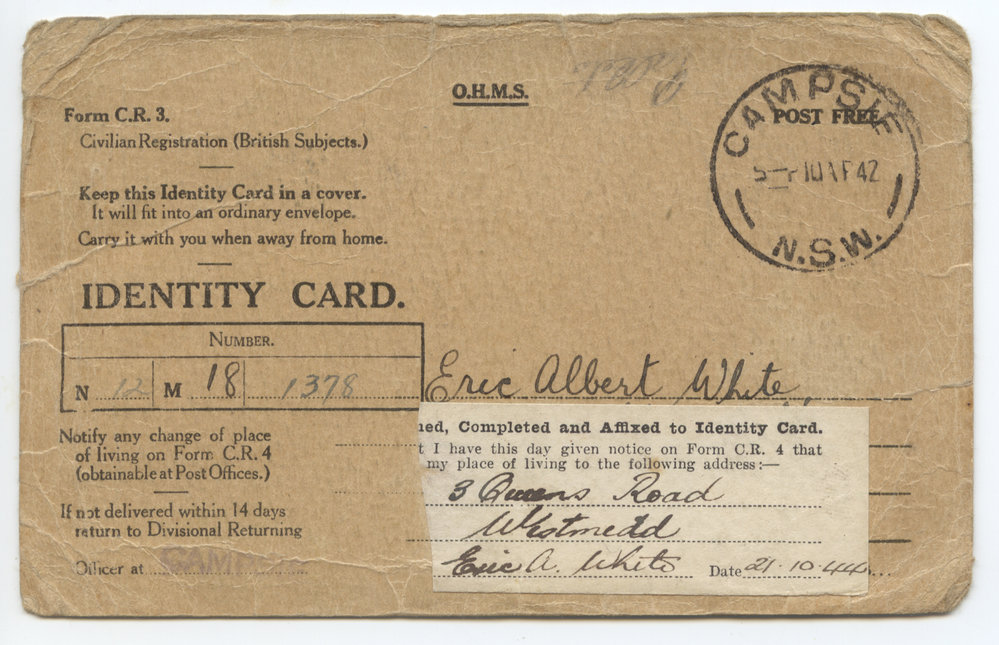 O.H.M.S.
Form C.R. 3.
Civilian Registration (British Subjects.)
Keep this Identity Card in a cover.
It will fit into an ordinary envelope.
Carry it with you when away from home.
POST FREE
CAMPSIE
42
N.S.W.
IDENTITY CARD.
NUMBER.
N 12 M 18 1378
Eric Albert White,
Notify any change of place
of living on Form C.R. 4
(obtainable at Post Offices.)
If not delivered within 14 days
return to Divisional Returning
Officer at
ed, Completed and Affixed to Identity Card.
t I have this day given notice on Form C.R. 4 that
my place of living to the following address:—
3 Queens Road
Westmedd
Eric A. White Date 21.10.44